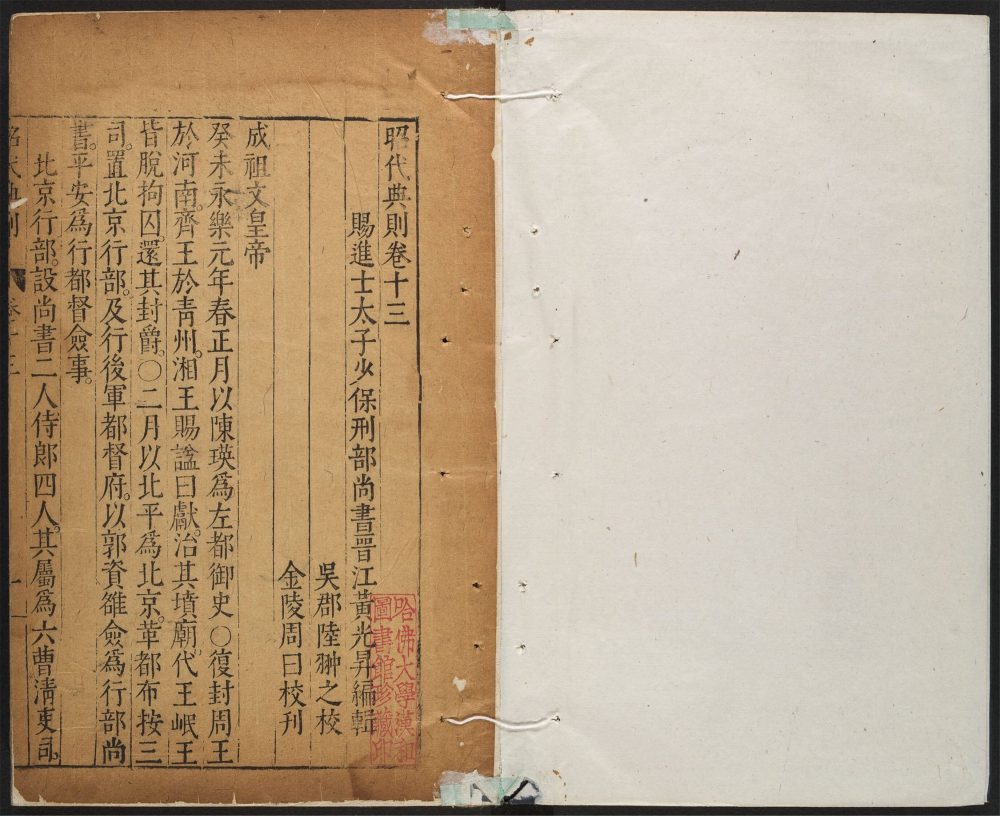 昭代典則卷十三
賜進士太子少保刑部尚書晋江黃光昇編輯
吳郡陸翀之校
金陵周曰校刊
成祖文皇帝
癸未永樂元年春正月以陳瑛爲左都御史○復封周王
於河南。齊王於靑州。湘王賜諡曰獻。治其墳廟。代王岷王
皆脫拘囚。還其封爵。○二月以北平爲北京。革都布按三
司。置北京行部。及行後軍都督府。以郭資雒僉爲行部尚
書。平安爲行都督僉事。
北京行部。設尚書二人侍郎四人。其屬爲六曹淸吏司。
昭代典則
卷十三
一
哈佛大學漢和
圖書館珍藏印